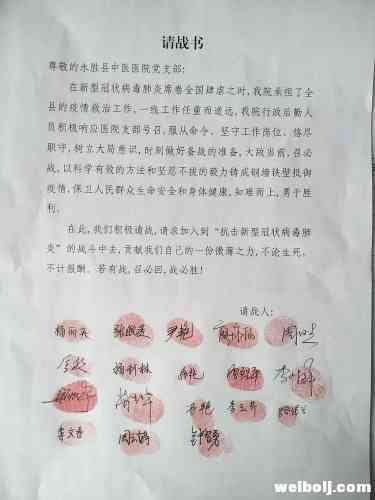 请战书
尊敬的永胜县中医医院党支部:
在新型冠状病毒肺炎席卷全国肆虐之时,我院承担了全
县的疫情救治工作,一线工作任重而道远,我院行政后勤人
员积极响应医院支部号召,服从命令、坚守工作岗位、恪尽
职守,树立大局意识,时刻做好备战的准备,大敌当前,召必
战,以科学有效的方法和坚忍不拔的毅力铸成铜墙铁壁抵御
疫情,保卫人民群众生命安全和身体健康,知难而上,勇于胜
利。
在此,我们积极请战,请求加入到“抗击新型冠状病毒肺
炎”的战斗中去,贡献我们自己的一份微薄之力,不论生死,
不计报酬。若有战,召必回,战必胜!
请战人:
杨丽英
杨利林
李文春
weibolj.com